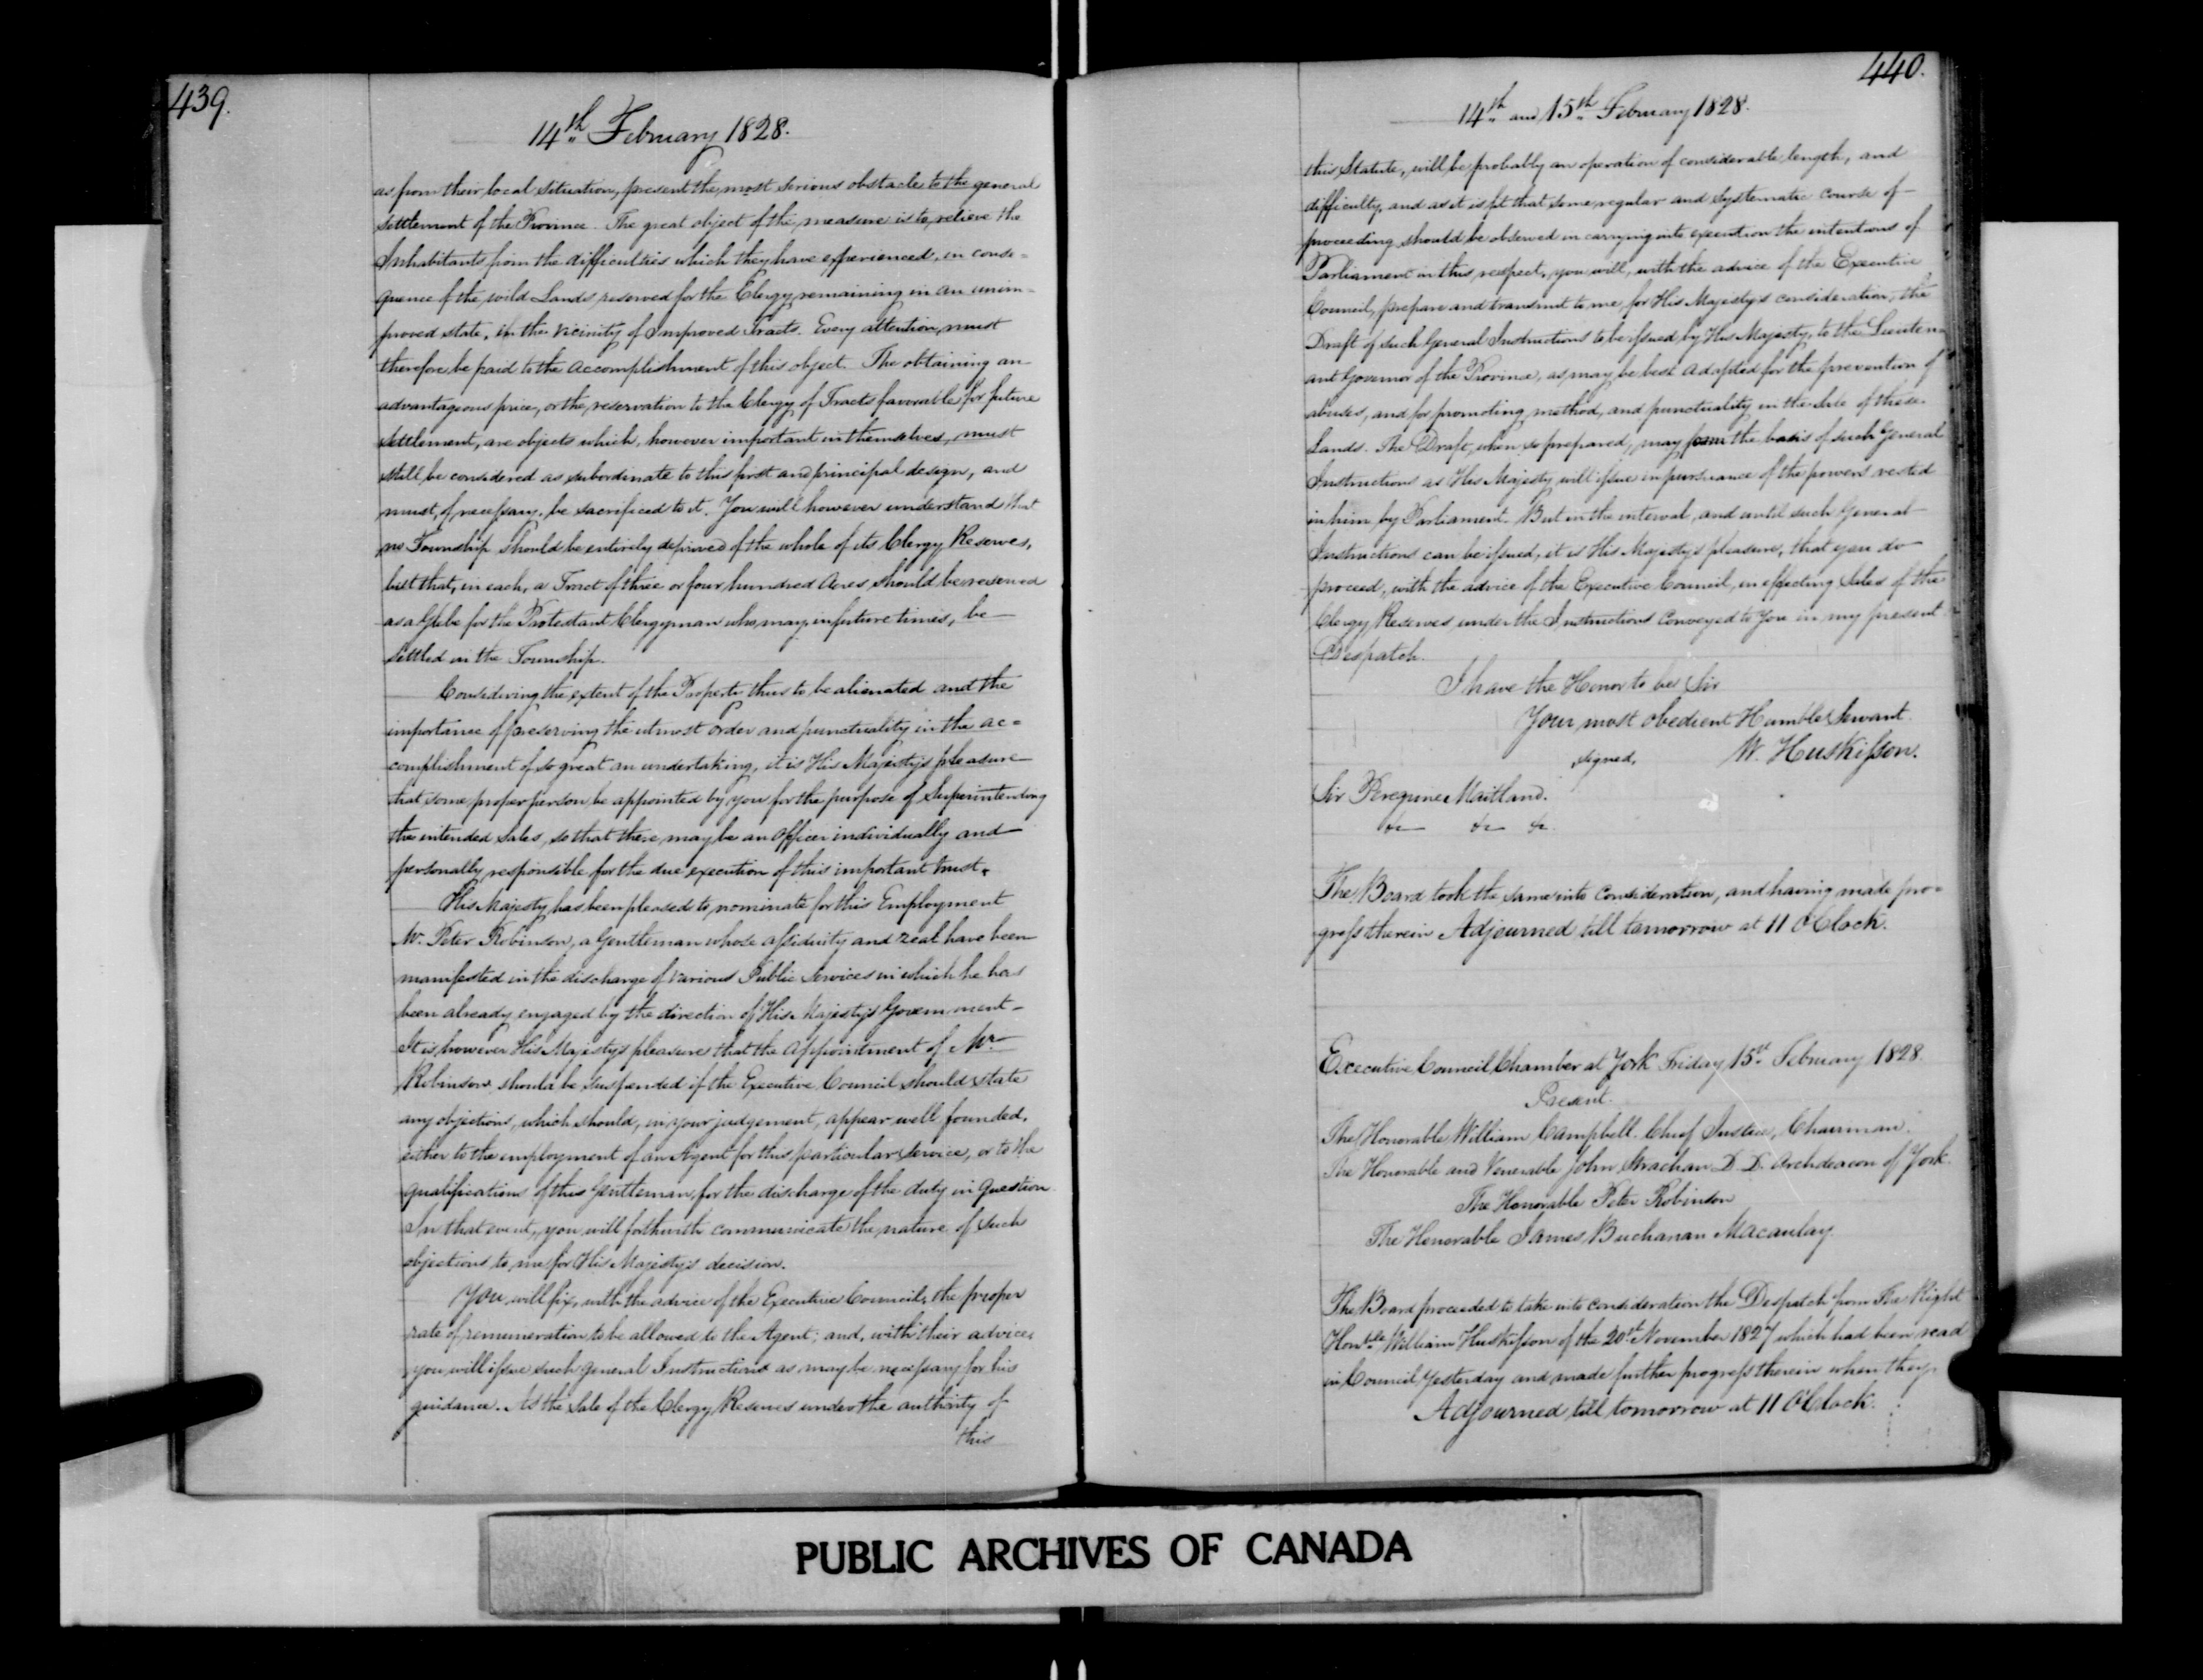 439.
14th February 1828.
as from their local situation, present the most serious obstacle to the general
settlement of the Province. The great object of the measure is to relieve the
Inhabitants from the difficulties which they have experienced, in conse=
quence of the wild Lands reserved for the Clergy remaining in an unim=
proved state, in the vicinity of Improved Tracts. Every attention must
therefore be paid to the accomplishment of this object. The obtaining an
advantageous price, or the reservation to the Clergy of Tracts favorable for future
settlement, are objects which, however important in themselves, must
still be considered as subordinate to this first and principal design, and
must, if necessary, be sacrificed to it. You will however understand that
no Township should be entirely deprived of the whole of its Clergy Reserves,
but that, in each, a Tract of three or four hundred Acres should be reserved
as a Glebe for the Protestant Clergyman who may, in future times, be
settled in the Township.
Considering the extent of the Property thus to be alienated and the
importance of preserving the utmost order and punctuality in the ac=
complishment of so great an undertaking, it is His Majesty's pleasure
that some proper person be appointed by you for the purpose of Superintending
the intended Sales, so that there may be an Officer individually and
personally responsible for the due execution of this important trust.
His Majesty has been pleased to nominate for this Employment
Mr. Peter Robinson, a Gentleman whose assiduity and zeal have been
manifested in the discharge of various Public Services in which he has
been already engaged by the direction of His Majesty's Government-
It is, however His Majesty's pleasure that the appointment of Mr.
Robinson should be suspended if the Executive Council should state
any objections, which should, in your judgement, appear well founded,
either to the employment of an Agent for this particular Service, or to the
qualifications of this Gentleman for the discharge of the duty in question
In that event, you will forthwith communicate the nature of such
objections to me for His Majesty's decision.
You will fix, with the advice of the Executive Council, the proper
rate of remuneration to be allowed to the Agent; and, with their advice,
you will issue such general Instructions as may be necessary for his
guidance. As the Sale of the Clergy Reserves under the authority of
this
440.
14th and 15th February 1828.
this Statute, will be probably an operation of considerable length, and
difficulty, and as it is fit that some regular and systematic course of
proceeding should be observed in carrying into execution the intentions of
Parliament in this respect, you will, with the advice of the Executive
Council, prepare and transmit to me for His Majesty's consideration, the
Draft of such General Instructions to be issued by His Majesty, to the Lieuten=
ant Governor of the Province, as may be best adapted for the prevention of
abuses, and for promoting method, and punctuality in the Sale of these
Lands. The Draft, when so prepared, may form the basis of such General
Instructions as His Majesty will issue in pursuance of the powers vested
in him by Parliament. But in the interval, and until such General
Instructions can be issued, it is His Majesty's pleasure, that you do
proceed, with the advice of the Executive Council, in effecting Sales of the
Clergy Reserves under the Instructions conveyed to You in my present
Despatch.
I have the Honor to be Sir
Your most obedient Humble Servant.
signed, W. Huskisson.
Sir Peregrine Maitland.
&c &c &c
The Board took the same into consideration, and having made pro=
gress therein Adjourned till tomorrow at 11 OClock.
Executive Council Chamber at York Friday 15th February 1828.
Present.
The Honorable William Campbell. Chief Justice, Chairman.
The Honorable and Venerable John Strachan D.D. Archdeacon of York.
The Honorable Peter Robinson
The Honorable James Buchanan Macaulay.
The Board proceeded to take into consideration the Despatch from The Right
Honble William Huskisson of the 20th November 1827 which had been read
in Council Yesterday and made further progress therein when they
Adjourned till tomorrow at 11 OClock.
PUBLIC ARCHIVES OF CANADA